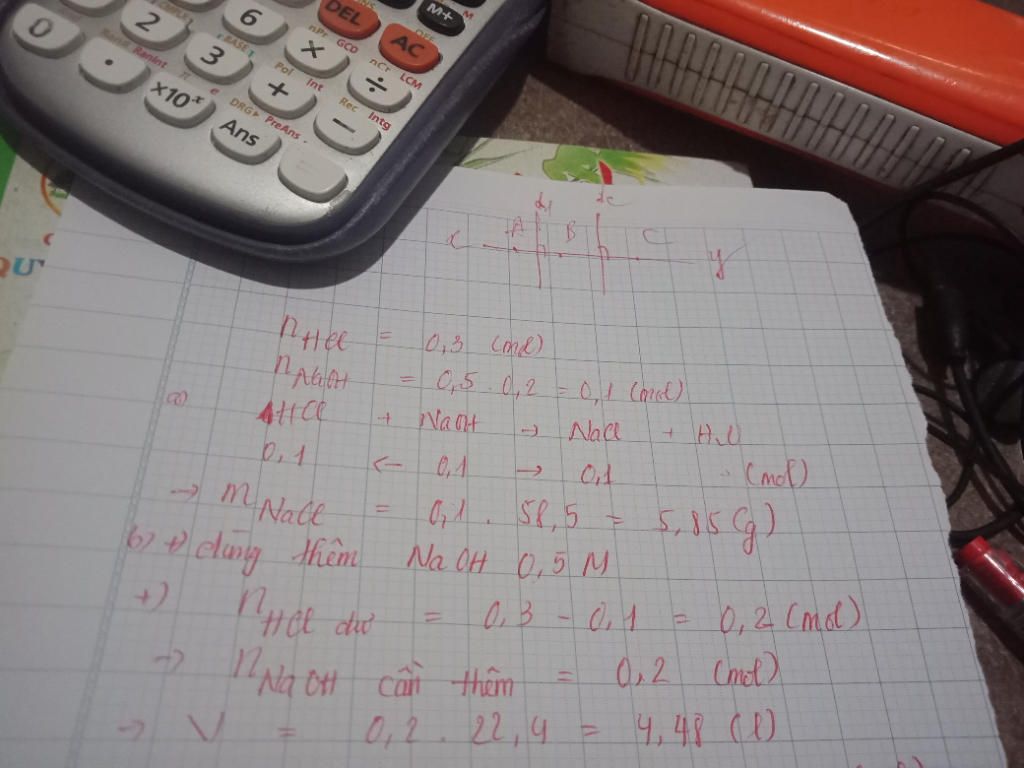 M
DEL
M+
nPr
GCD
OFF
6
×
AC
0
2
[BASE]
3
nCr
LCM
RanInt
π
e
Pol
Int
÷
·
×10ˣ
+
Rec
Intg
DRG▸
PreAns
−
Ans
QU
d₁
x A B C y
n HCl = 0,3 (mol)
n NaOH = 0,5 . 0,2 = 0,1 (mol)
a) HCl + NaOH → NaCl + H₂O
0,1 ← 0,1 → 0,1 (mol)
→ m NaCl = 0,1 . 58,5 = 5,85 (g)
b) +) dùng thêm NaOH 0,5 M
+) n HCl dư = 0,3 - 0,1 = 0,2 (mol)
→ n NaOH cần thêm = 0,2 (mol)
→ V = 0,2 . 22,4 = 4,48 (l)